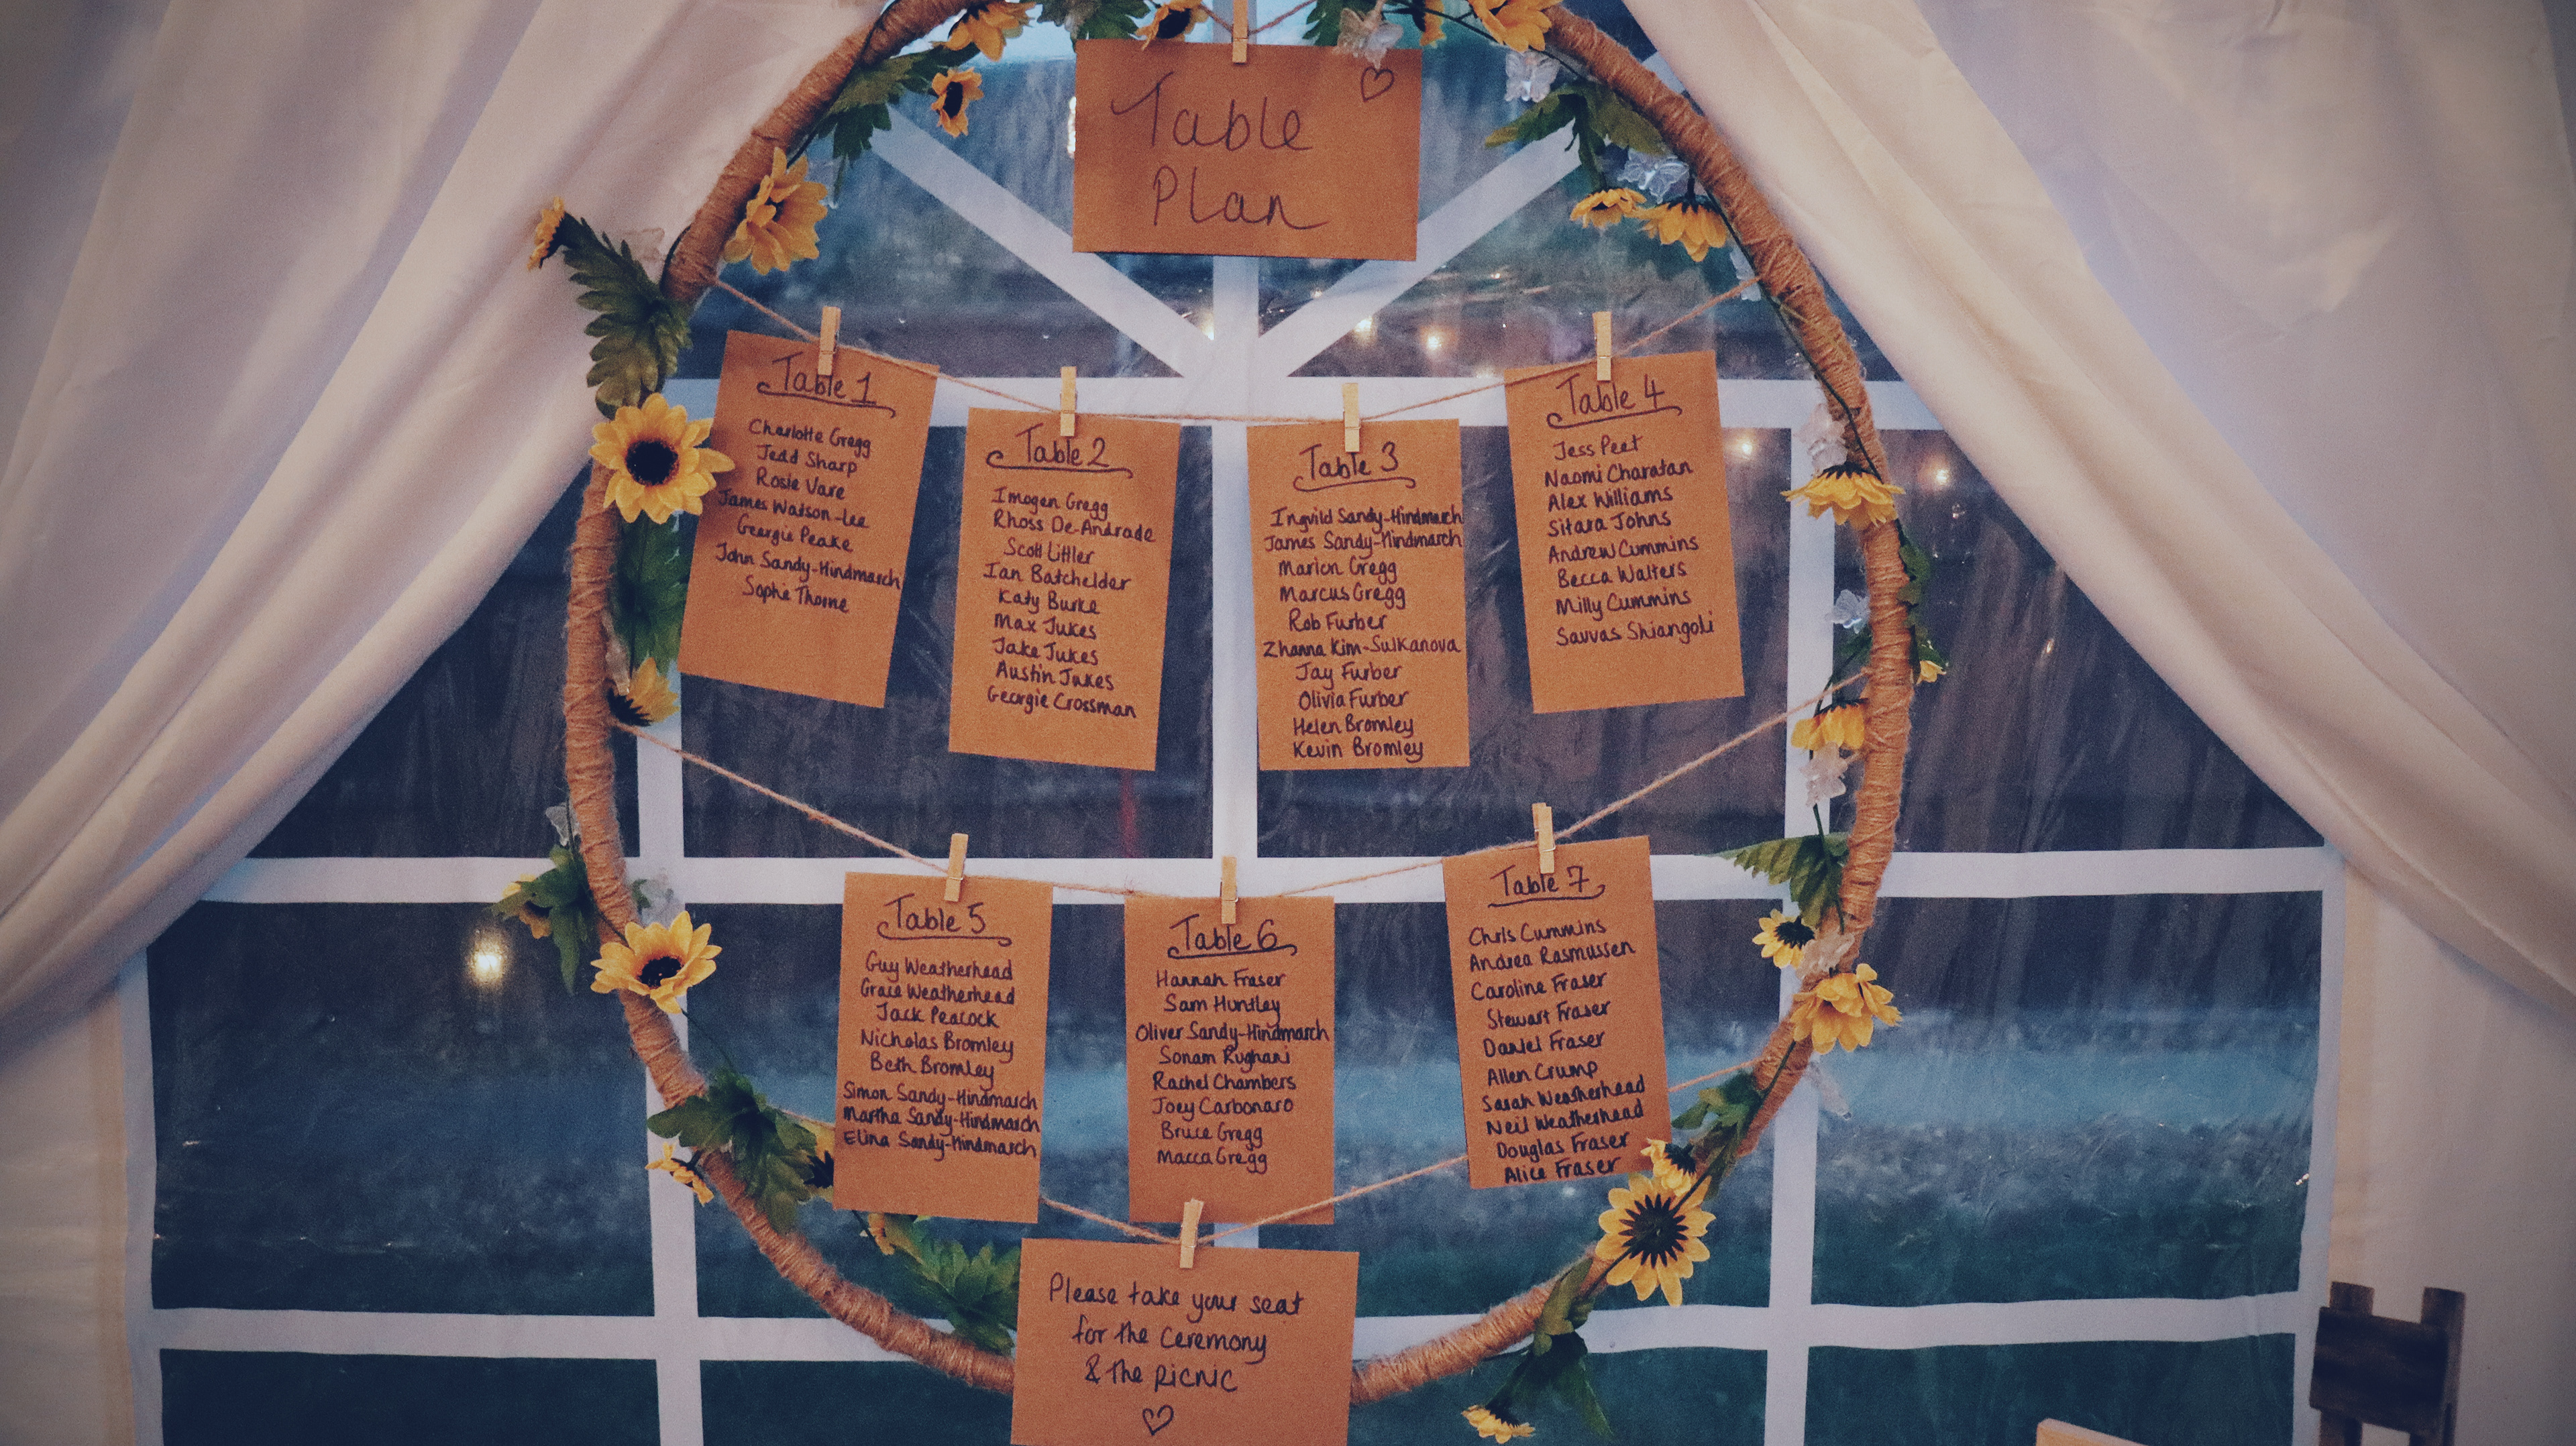 Table
Plan
Table 1
Charlotte Gregg
Jedd Sharp
Rosie Vare
James Watson-Lee
Georgie Peake
John Sandy-Hindmarch
Sophie Thorne
Table 2
Imogen Gregg
Rhoss De-Andrade
Scott Littler
Ian Batchelder
Katy Burke
Max Jukes
Jake Jukes
Austin Jukes
Georgie Crossman
Table 3
Ingvild Sandy-Hindmarch
James Sandy-Hindmarch
Marlon Gregg
Marcus Gregg
Rob Furber
Zhanna Kim-Sulkanova
Jay Furber
Olivia Furber
Helen Bromley
Kevin Bromley
Table 4
Jess Peet
Naomi Charatan
Alex Williams
Sitara Johns
Andrew Cummins
Becca Walters
Milly Cummins
Savvas Shiangoli
Table 5
Guy Weatherhead
Grace Weatherhead
Jack Peacock
Nicholas Bromley
Beth Bromley
Simon Sandy-Hindmarch
Martha Sandy-Hindmarch
Elina Sandy-Hindmarch
Table 6
Hannah Fraser
Sam Huntley
Oliver Sandy-Hindmarch
Sonam Rughani
Rachel Chambers
Joey Carbonaro
Bruce Gregg
Macca Gregg
Table 7
Chris Cummins
Andrea Rasmussen
Caroline Fraser
Stewart Fraser
Daniel Fraser
Allen Crump
Sarah Weatherhead
Neil Weatherhead
Douglas Fraser
Alice Fraser
Please take your seat
for the ceremony
& the picnic